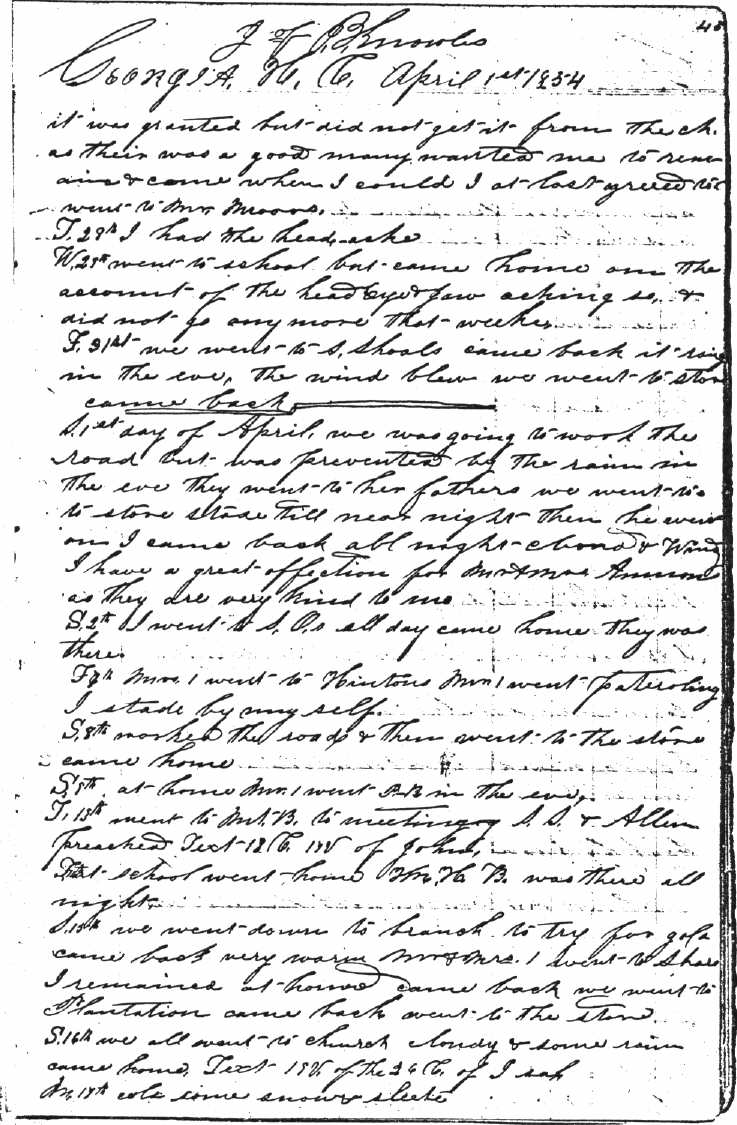 48
J of P. Knowles
Georgia, H, C, April 1st 1854
it was granted but did not get it from the ch.
as their was a good many wanted me to rem
ain & come when I could I at last agreed to
went to Mr Moores.
T. 28th I had the head ache
W. 29th went to school but came home on the
account of the head eye & jaw aching so, &
did not go any more that week.
F. 31st we went to S, Shoals came back it rain
in the eve, the wind blew we went to store
came back
S. 1st day of April, we was going to work the
road but was prevented by the rain in
the eve they went to her fathers we went to
to store stade till near night then he went
on I came back all night cloud & Wind
I have a great affection for Mr & Mrs Ammons
as they are very kind to me
S. 2th I went to S. O.s all day came home they was
there.
F 7th Mrs. 1 went to Hintons Mr. 1 went pateroling
I stade by my self.
S. 8th worked the roads & then went to the store
came home
S. 9th. at home Mr. 1 went in the eve,
T. 13th went to Mt. B. to meeting S. S. & Allen
preached Text 12 C. 1 V of John,
school went home Wm. H. B. was there all
night.
S. 15th we went down to branch to try for gold
came back very warm Mr & Mrs. 1 went to Shoals
I remained at home came back we went to
Plantation came back went to the store.
S. 16th we all went to church cloudy & some rain
came home. Text 1st V. of the 26 C. of I sah
M. 17th cold some snow & sleete